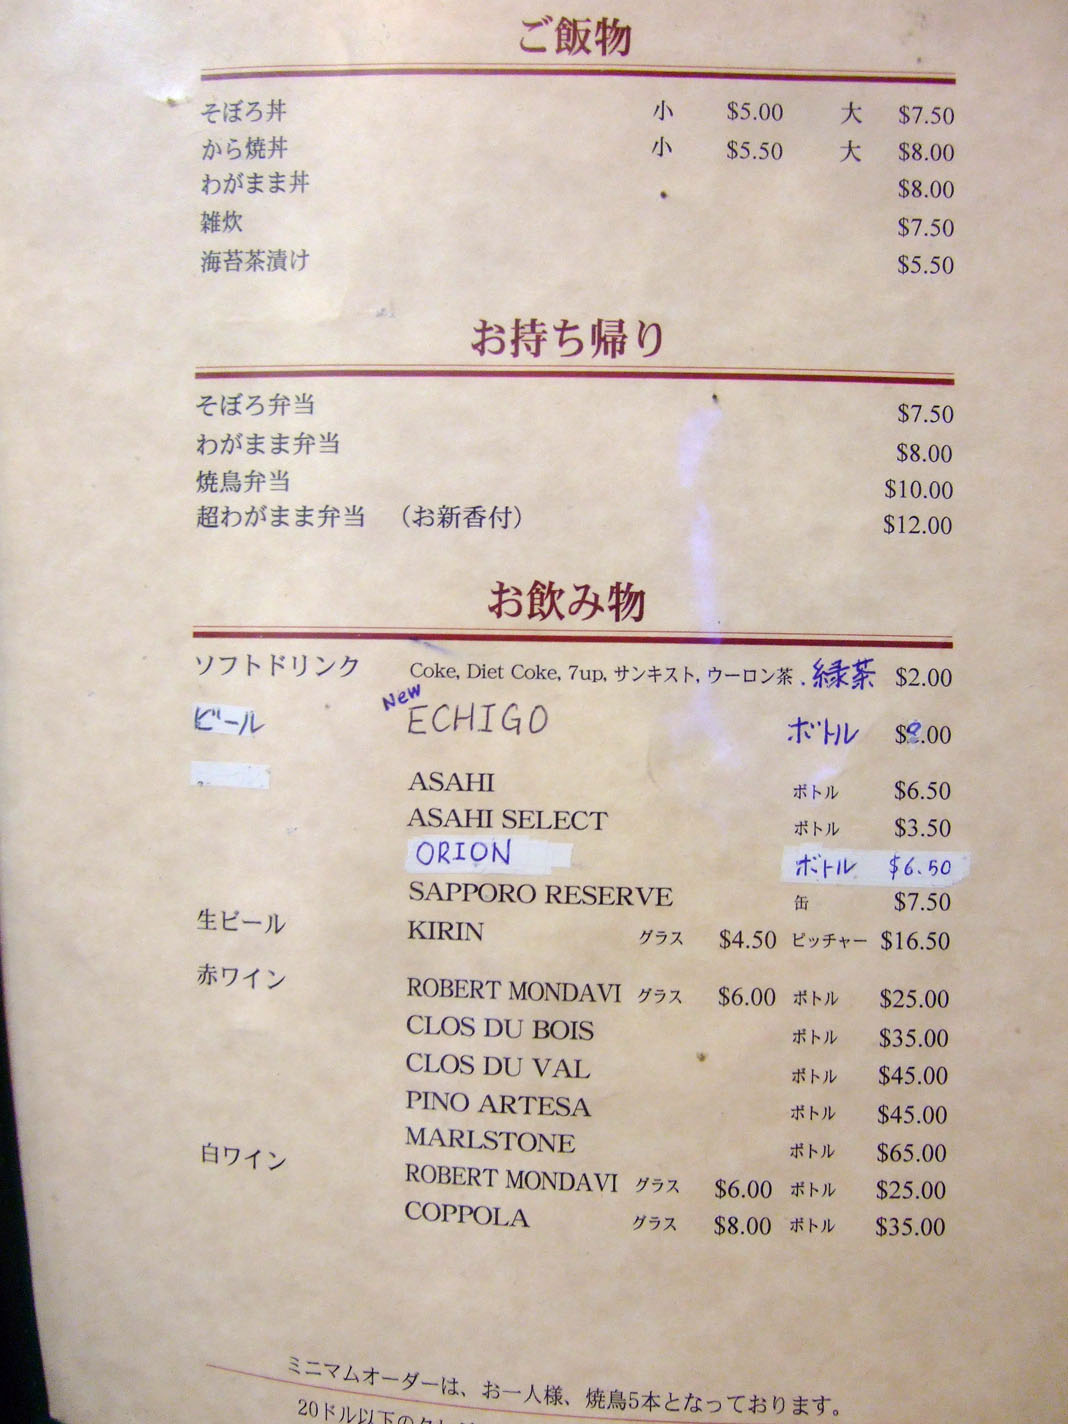 ご飯物
そぼろ丼 小 $5.00 大 $7.50
から焼丼 小 $5.50 大 $8.00
わがまま丼 $8.00
雑炊 $7.50
海苔茶漬け $5.50
お持ち帰り
そぼろ弁当 $7.50
わがまま弁当 $8.00
焼鳥弁当 $10.00
超わがまま弁当 （お新香付） $12.00
お飲み物
ソフトドリンク Coke, Diet Coke, 7up, サンキスト, ウーロン茶 . 緑茶 $2.00
New
ビール ECHIGO ボトル
ASAHI ボトル $6.50
ASAHI SELECT ボトル $3.50
ORION ボトル $6.50
SAPPORO RESERVE 缶 $7.50
生ビール KIRIN グラス $4.50 ピッチャー $16.50
赤ワイン ROBERT MONDAVI グラス $6.00 ボトル $25.00
CLOS DU BOIS ボトル $35.00
CLOS DU VAL ボトル $45.00
PINO ARTESA ボトル $45.00
MARLSTONE ボトル $65.00
白ワイン ROBERT MONDAVI グラス $6.00 ボトル $25.00
COPPOLA グラス $8.00 ボトル $35.00
ミニマムオーダーは、お一人様、焼鳥5本となっております。
20ドル以下の